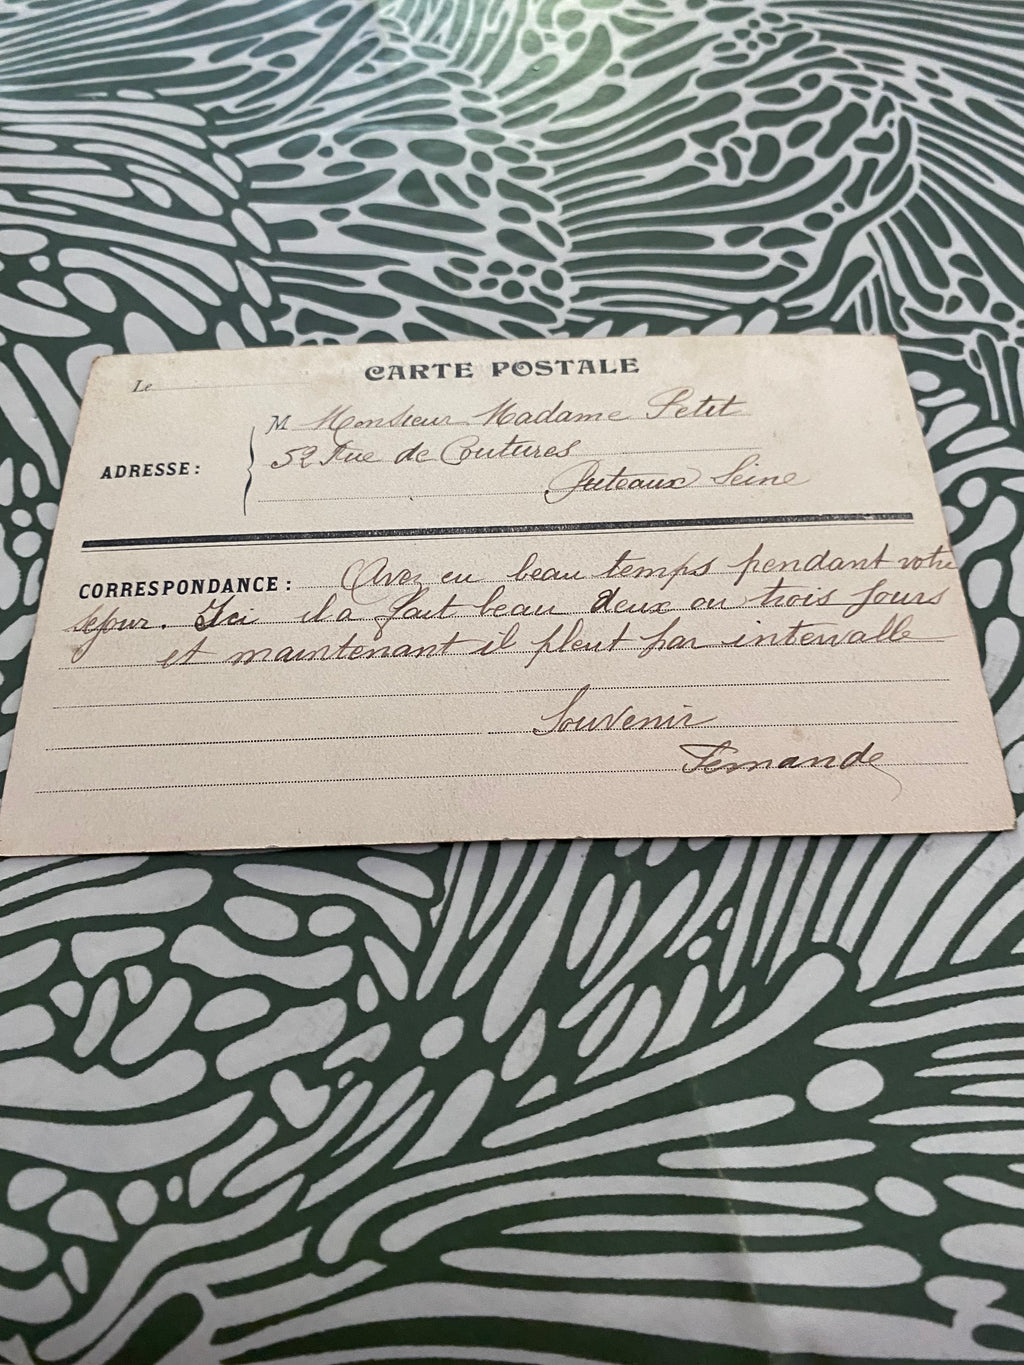 CARTE POSTALE
Le
M Monsieur Madame Petit
ADRESSE :
52 Rue de Coutures
Puteaux Seine
CORRESPONDANCE : Avez eu beau temps pendant votre
sejour. Ici il a fait beau deux ou trois jours
et maintenant il pleut par intervalle
Souvenir
Fernande